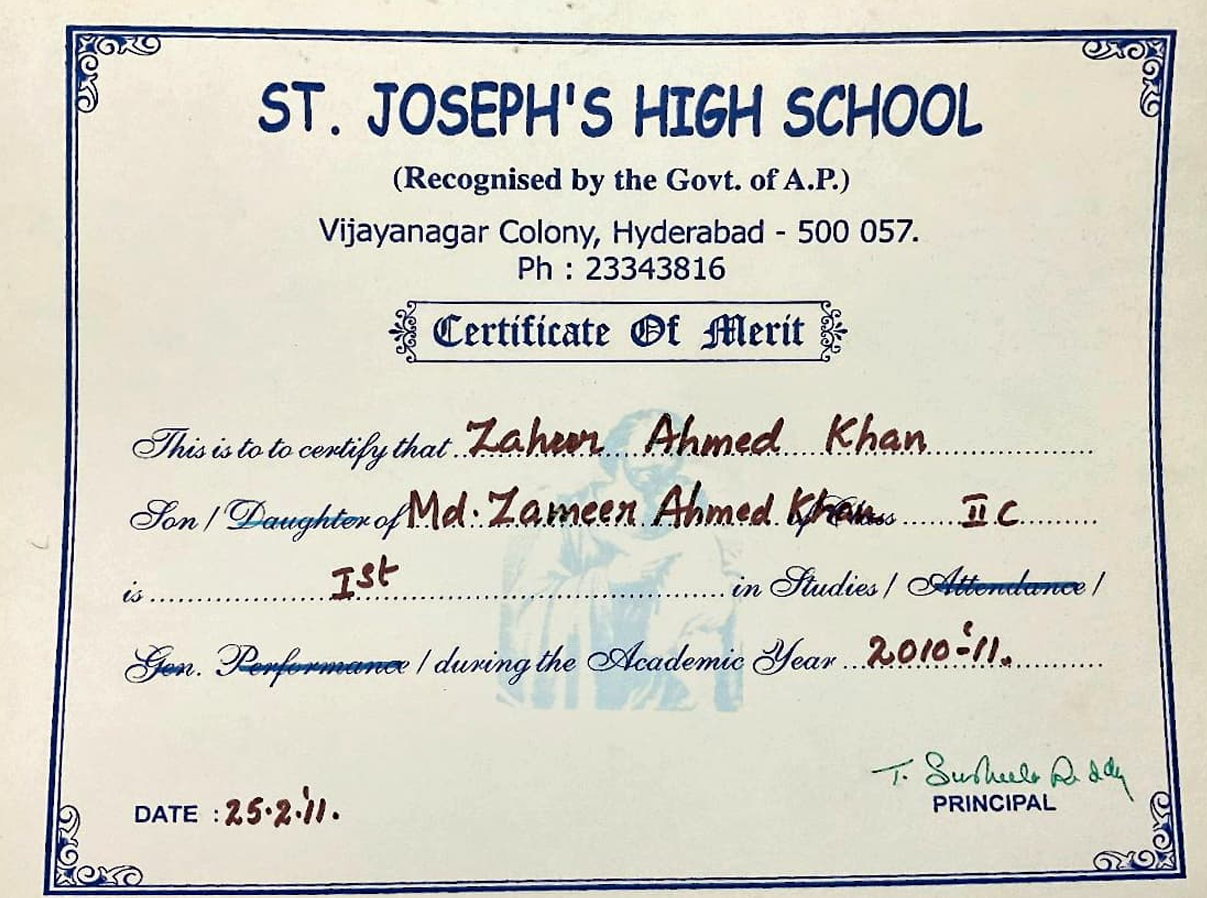 ST. JOSEPH'S HIGH SCHOOL
(Recognised by the Govt. of A.P.)
Vijayanagar Colony, Hyderabad - 500 057.
Ph : 23343816
Certificate Of Merit
This is to to certify that Zaheer Ahmed Khan
Son / Daughter of Md. Zameer Ahmed Khan of Class II C
is Ist in Studies / Attendance /
Gen. Performance / during the Academic Year 2010-'11.
T. Susheela Reddy
DATE : 25.2.'11.
PRINCIPAL